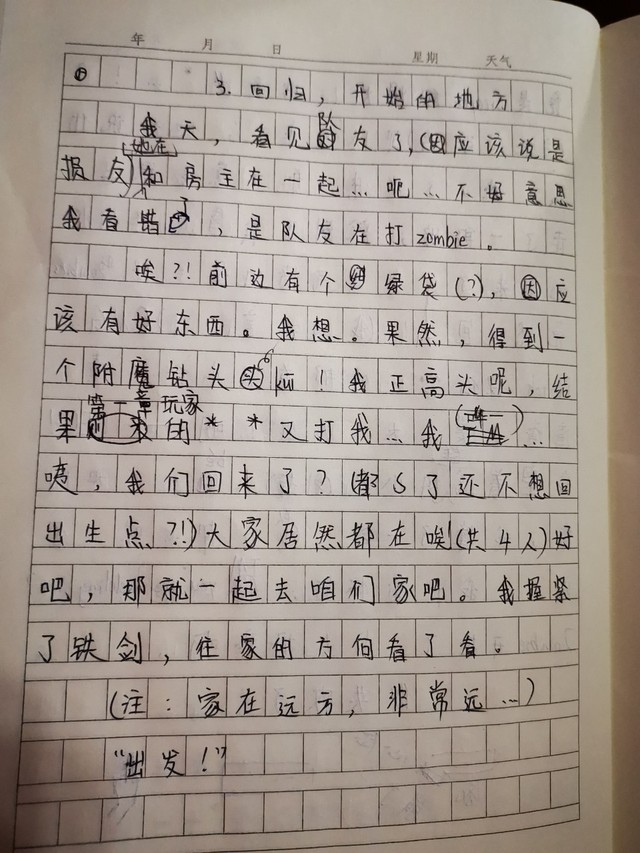 年 月 日 星期 天气
3. 回归，开始的地方
我天，看见队友了，(应该说是
她在
损友)和房主在一起…呃…不好意思
我看错了，是队友在打zombie。
唉？！前边有个绿袋(？)，因应
该有好东西。我想。果然，得到一
个附魔钻头kui！我正高头呢，结
第一章玩家
果的**又打我…我…
咦，我们回来了？(都S了还不想回
出生点？！)大家居然都在唉！(共4人)好
吧，那就一起去咱们家吧。我握紧
了铁剑，往家的方向看了看。
(注：家在远方，非常远…)
“出发！”